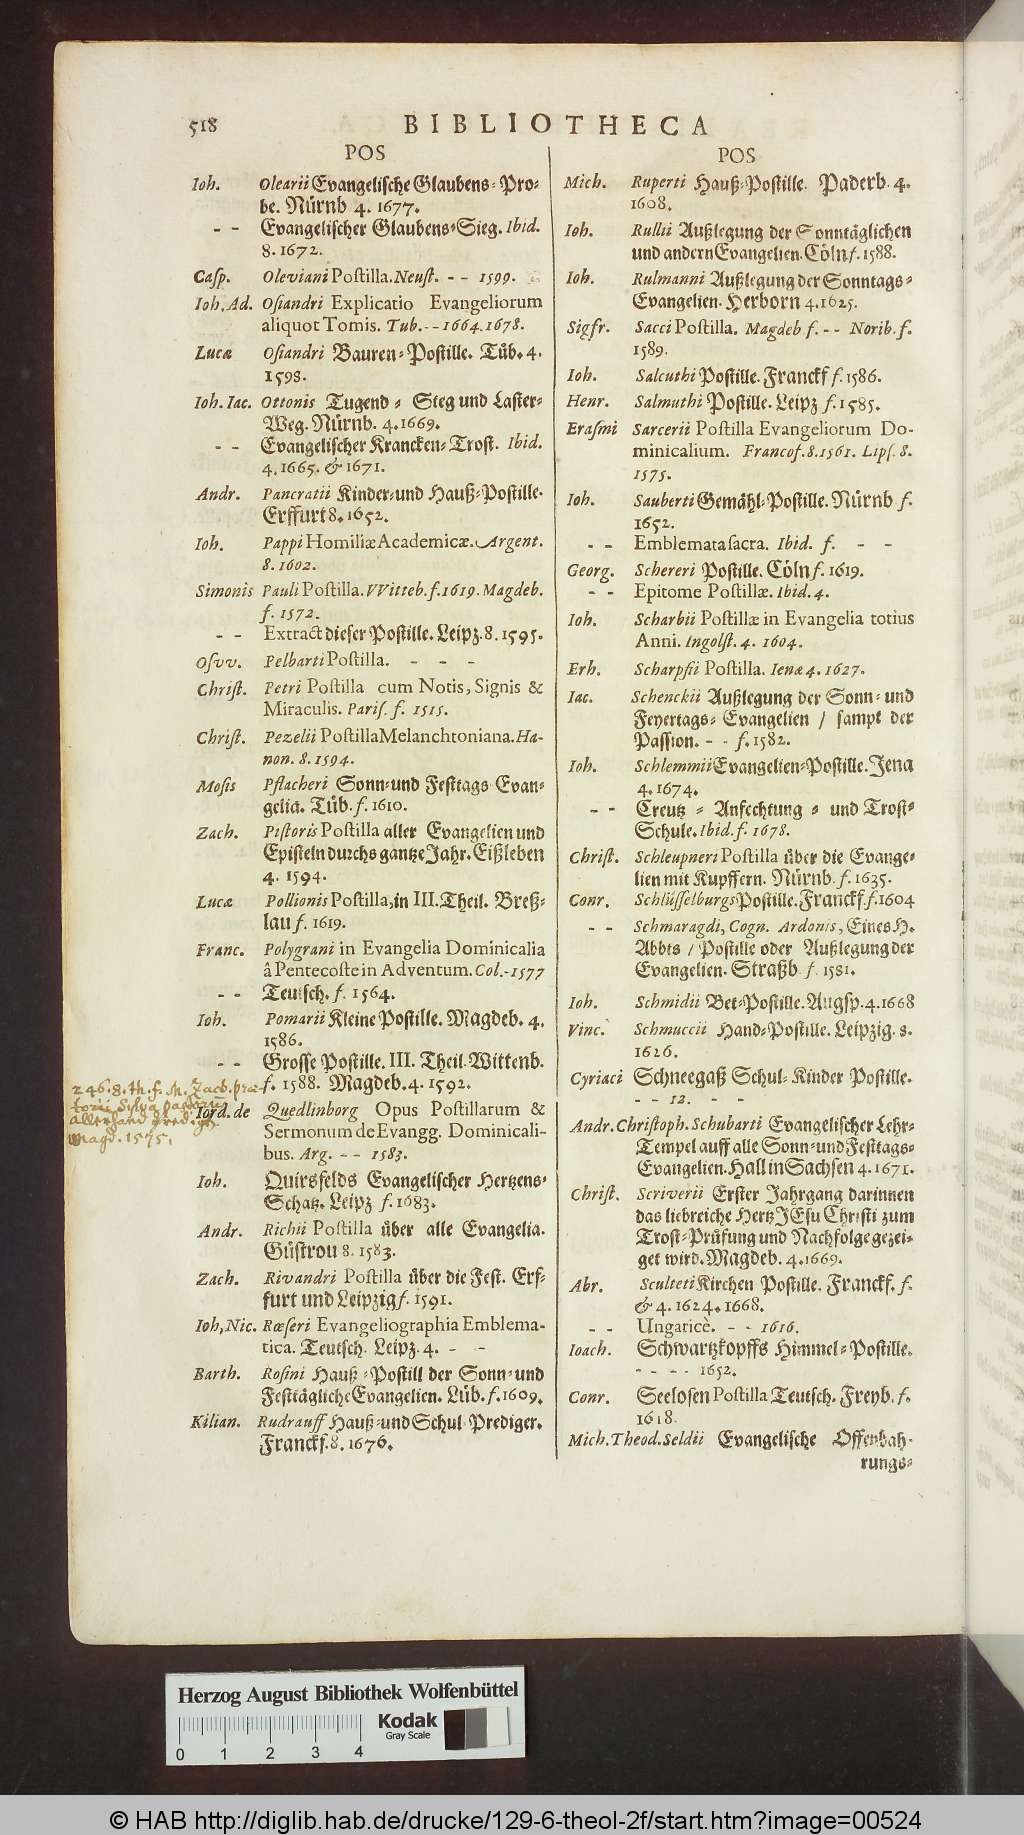 518 BIBLIOTHECA
POS
Ioh. Olearii Evangelische Glaubens-Pro-
be. Nürnb 4. 1677.
- - Evangelischer Glaubens-Sieg. Ibid.
8. 1672.
Casp. Oleviani Postilla. Neust. - - 1599.
Ioh. Ad. Osiandri Explicatio Evangeliorum
aliquot Tomis. Tub. - - 1664. 1678.
Lucæ Osiandri Bauren-Postille. Tüb. 4.
1598.
Ioh. Iac. Ottonis Tugend- Steg und Laster-
Weg. Nürnb. 4. 1669.
- - Evangelischer Krancken-Trost. Ibid.
4. 1665. & 1671.
Andr. Pancratii Kinder-und Hauß-Postille.
Erffurt 8. 1652.
Ioh. Pappi Homiliæ Academicæ. Argent.
8. 1602.
Simonis Pauli Postilla. VVitteb. f. 1619. Magdeb.
f. 1572.
- - Extract dieser Postille. Leipz. 8. 1595.
Osvv. Pelbarti Postilla. - - -
Christ. Petri Postilla cum Notis, Signis &
Miraculis. Paris. f. 1515.
Christ. Pezelii Postilla Melanchtoniana. Ha-
non. 8. 1594.
Mosis Pflacheri Sonn-und Festtags Evan-
gelia. Tüb. f. 1610.
Zach. Pistoris Postilla aller Evangelien und
Episteln durchs gantze Jahr. Eißleben
4. 1594.
Lucæ Pollionis Postilla, in III. Theil. Breß-
lau f. 1619.
Franc. Polygrani in Evangelia Dominicalia
â Pentecoste in Adventum. Col. - 1577
- - Teutsch. f. 1564.
Ioh. Pomarii Kleine Postille. Magdeb. 4.
1586.
- - Grosse Postille. III. Theil. Wittenb.
f. 1588. Magdeb. 4. 1592.
246. 8. th. f. M. Zach. præ-
torii Sylva pastorum
allerhand pred.
Magd. 1575.
Iord. de Quedlinborg Opus Postillarum &
Sermonum de Evangg. Dominicali-
bus. Arg. - - 1583.
Ioh. Quirsfelds Evangelischer Hertzens-
Schatz. Leipz f. 1683.
Andr. Richii Postilla über alle Evangelia.
Güstrou 8. 1583.
Zach. Rivandri Postilla über die Fest. Erf-
furt und Leipzig f. 1591.
Ioh. Nic. Rœseri Evangeliographia Emblema-
tica. Teutsch. Leipz. 4. - -
Barth. Rosini Hauß-Postill der Sonn-und
Festtägliche Evangelien. Lüb. f. 1609.
Kilian. Rudrauff Hauß-und Schul Prediger.
Franckf. 8. 1676.
POS
Mich. Ruperti Hauß-Postille. Paderb. 4.
1608.
Ioh. Rullii Außlegung der Sonntäglichen
und andern Evangelien. Cöln f. 1588.
Ioh. Rulmanni Außlegung der Sonntags-
Evangelien. Herborn 4. 1625.
Sigfr. Sacci Postilla. Magdeb f. - - Norib. f.
1589.
Ioh. Salcuthi Postille. Franckf f. 1586.
Henr. Salmuthi Postille. Leipz f. 1585.
Erasmi Sarcerii Postilla Evangeliorum Do-
minicalium. Francof. 8. 1561. Lips. 8.
1575.
Ioh. Sauberti Gemähl-Postille. Nürnb f.
1652.
- - Emblemata sacra. Ibid. f. - -
Georg. Schereri Postille. Cöln f. 1619.
- - Epitome Postillæ. Ibid. 4.
Ioh. Scharbii Postillæ in Evangelia totius
Anni. Ingolst. 4. 1604.
Erh. Scharpfii Postilla. Ienæ 4. 1627.
Iac. Schenckii Außlegung der Sonn- und
Feyertags- Evangelien / sampt der
Passion. - - f. 1582.
Ioh. Schlemmii Evangelien-Postille. Jena
4. 1674.
- - Creutz- Anfechtung- und Trost-
Schule. Ibid. f. 1678.
Christ. Schleupneri Postilla über die Evange-
lien mit Kupffern. Nürnb. f. 1635.
Conr. Schlüsselburgs Postille. Franckf. f. 1604
- - Schmaragdi, Cogn. Ardonis, Eines H.
Abbts / Postille oder Außlegung der
Evangelien. Straßb. f. 1581.
Ioh. Schmidii Bet-Postille. Augsp. 4. 1668
Vinc. Schmuccii Hand-Postille. Leipzig. 8.
1626.
Cyriaci Schneegaß Schul-Kinder Postille.
- - 12. - -
Andr. Christoph. Schubarti Evangelischer Lehr-
Tempel auff alle Sonn-und Festtags-
Evangelien. Hall in Sachsen 4. 1671.
Christ. Scriverii Erster Jahrgang darinnen
das liebreiche Hertz JEsu Christi zum
Trost-Prüfung und Nachfolge gezei-
get wird. Magdeb. 4. 1669.
Abr. Sculteti Kirchen Postille. Franckf. f.
& 4. 1624. 1668.
- - Ungaricè. - - 1616.
Ioach. Schwartzkopffs Himmel-Postille.
- - - - 1652.
Conr. Seelosen Postilla Teutsch. Freyb. f.
1618.
Mich. Theod. Seldii Evangelische Offenbah-
rungs-
Herzog August Bibliothek Wolfenbüttel
Kodak
Gray Scale
0 1 2 3 4
© HAB http://diglib.hab.de/drucke/129-6-theol-2f/start.htm?image=00524